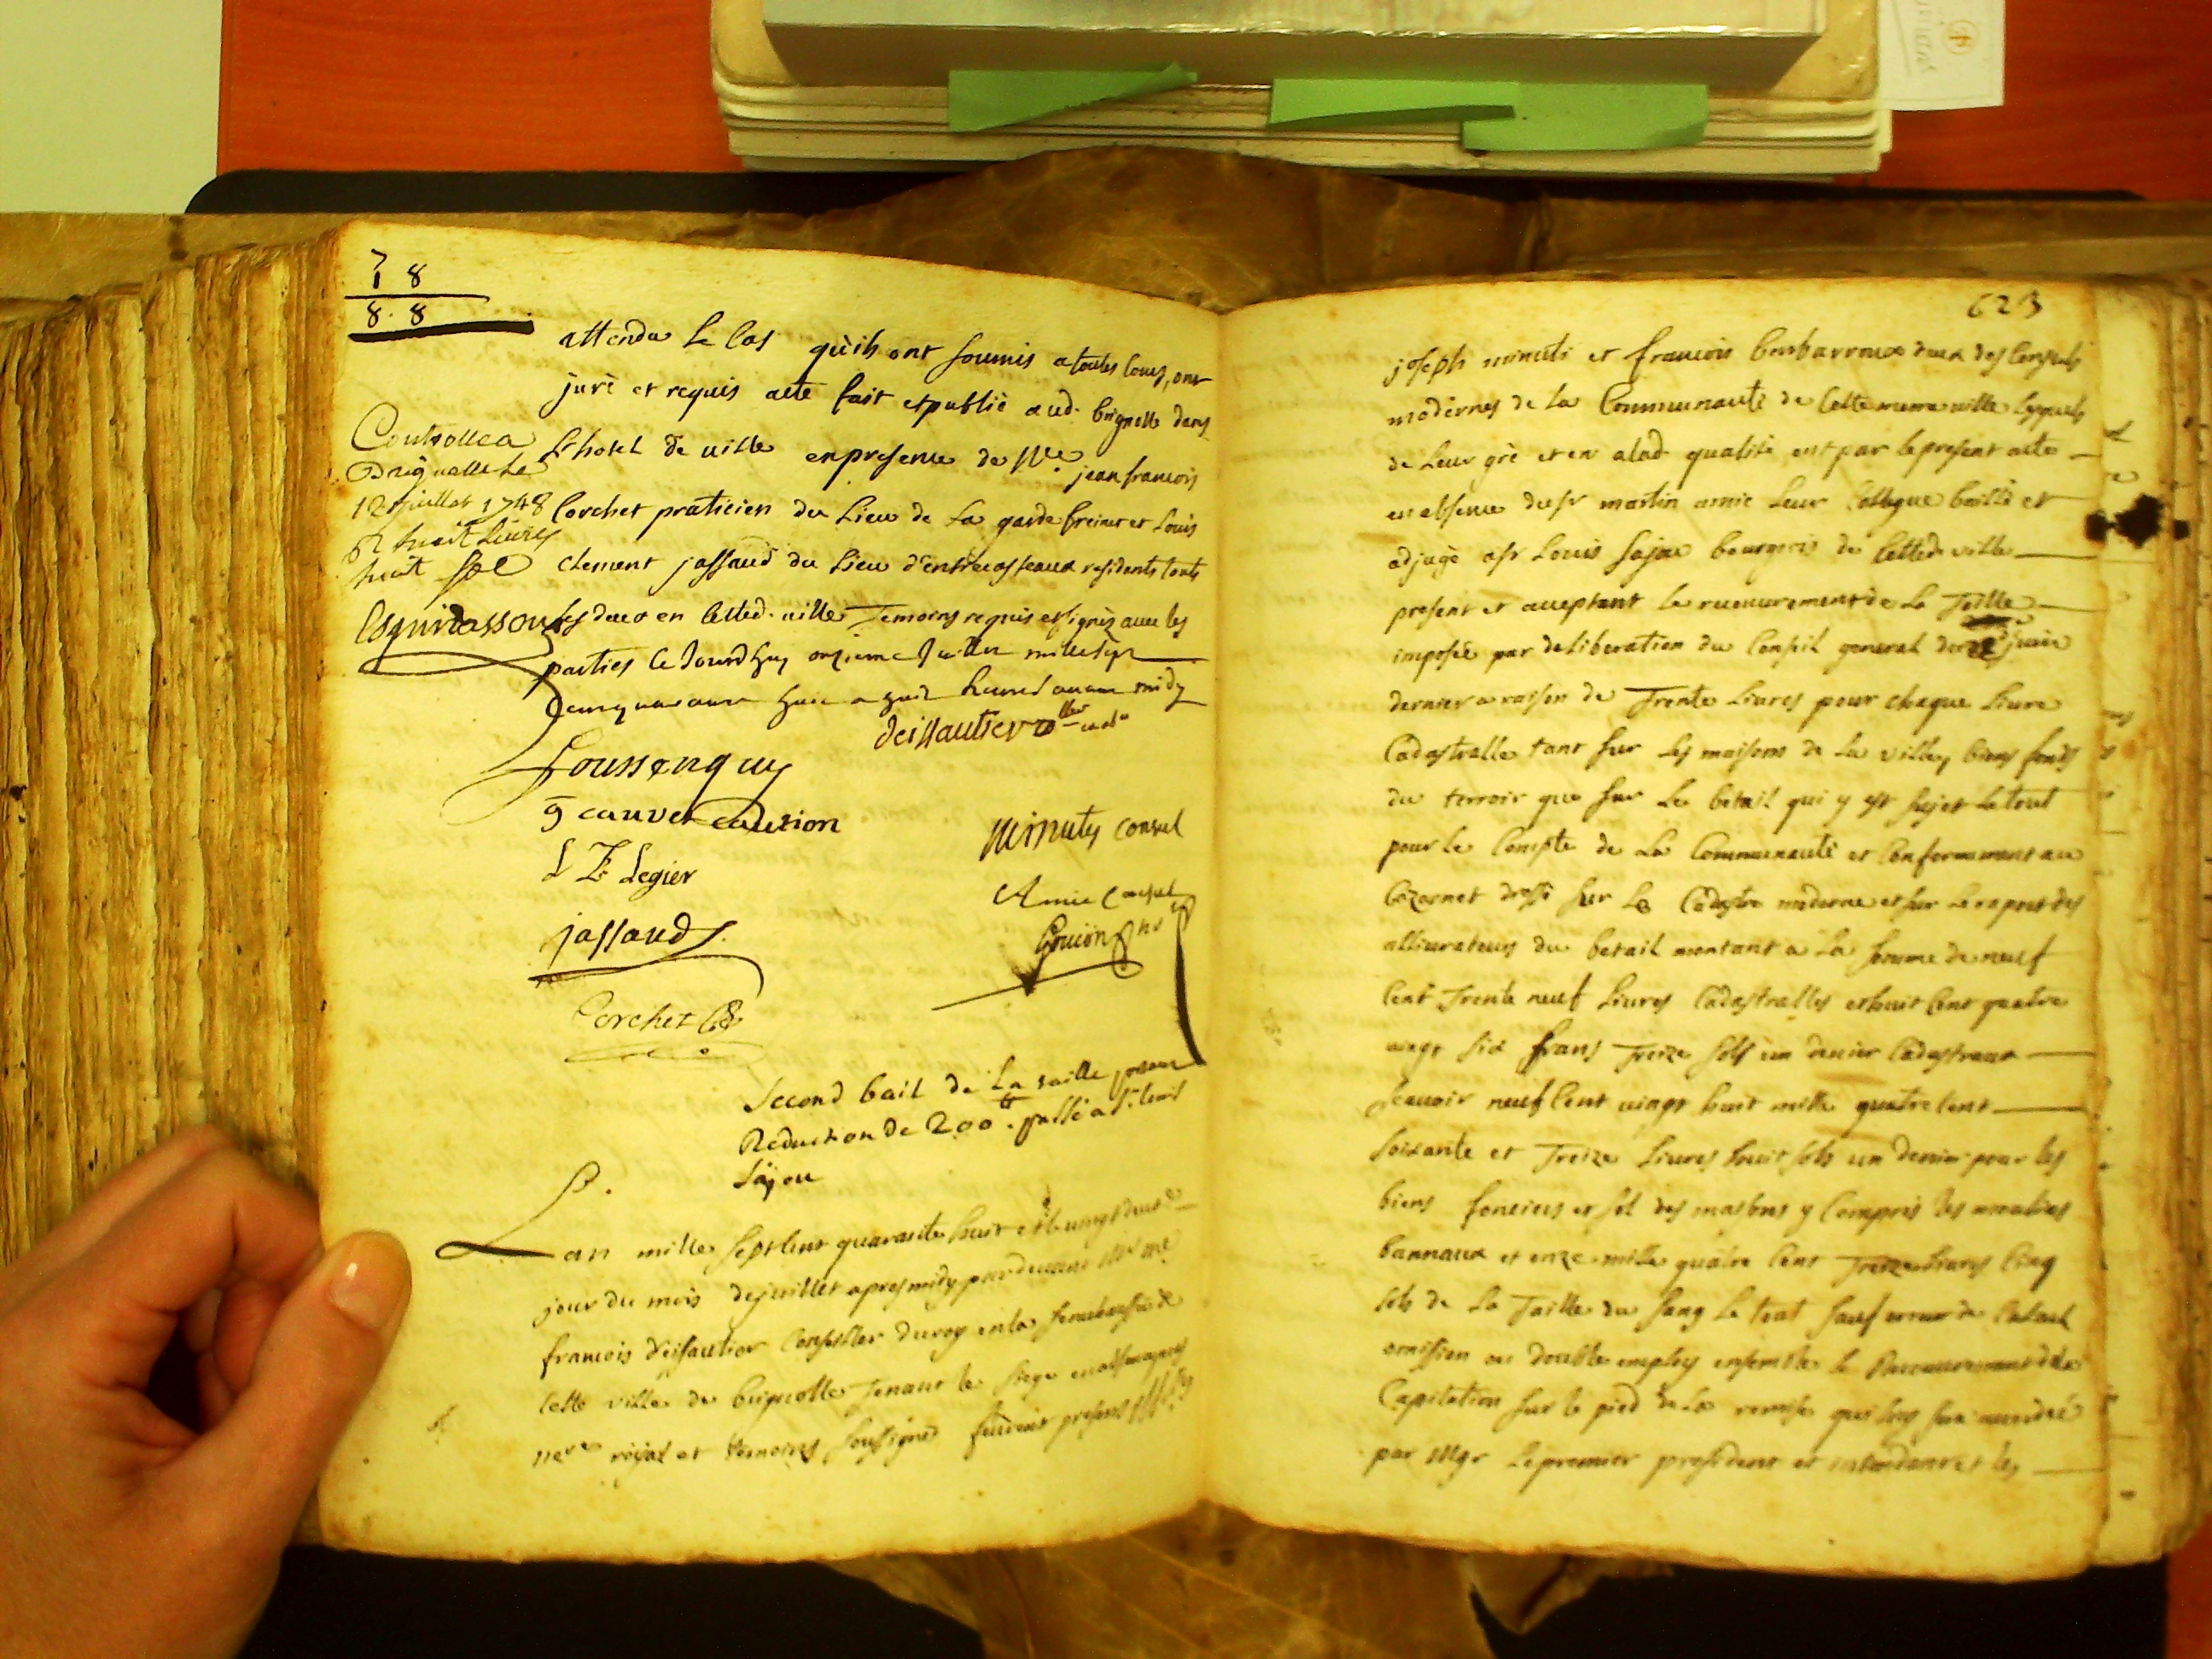 7
1 8
8. 8
attendu le cas qu'ils ont soumis a toutes cours, ont
juré et requis acte fait et publié aud. brignolle dans
l'hotel de ville en presence de Me jean francois
Corchet praticien du lieu de la garde freinet et Louis
clement jassaud du lieu d'entrecasteaux residents touts
les deux en cetted. ville Temoins requis et signés avec les
parties ce Jourdhuy onzieme Juillet mille sept
cens quarante huit a huit heures avant midy
Controllé a
Brignolle le
12 juillet 1748
R. huit livres
huit sol
deissautier
foussenquy
g cauvet caution
minuty consul
L Z Legier
Amic Consul
jassaud
Corchet
Second bail de la taille pour
Reduction de 200 ₶. passé a Sr. louis
Sajou
L'an mille sept cent quarante huit et le vingt deux
jour du mois de juillet apres midy pardevant
francois deissautier Conseiller du roy en la senechaussée de
cette ville de brignolle Tenant le siege en absence
royal et temoins soussignés furent presents
623
joseph minuti et francois barbarroux deux des Consuls
modernes de la Communauté de Cette meme ville lesquels
de leur gré et en alad. qualité ont par le present acte
en absence du sr martin amic leur Collegue baillé et
adjugé a sr Louis Sajou bourgeois de Cetted. ville
present et acceptant le recouvrement de la Taille
imposée par deliberation du Conseil general du juin
dernier a raison de Trente Livres pour chaque Livre
Cadastralle tant sur les maisons de la ville, biens fonds
du terroir que sur le betail qui y est sujet le tout
pour le Compte de la Communauté et Conformement au
Cazernet dressé sur le Cadastre moderne et sur le raport des
allivrateurs du betail montant a la somme de neuf
Cent Trente neuf Livres Cadastralles et huit Cent quatre
vingt six frans Treize sols un denier Cadastraux
scavoir neuf Cent vingt huit mille quatre Cent
soixante et Treize Livres huit sols un denier pour les
biens fonciers et sol des maisons y Compris les moulins
bannaux et onze mille quatre Cent Treize Livres Cinq
sols de la Taille du sang le tout sauf erreur de Calcul
omission ou double employ ensemble le Recouvrement de la
Capitation sur le pied de la remise qui luy sera accordée
par Mgr Le premier president et intendant et les